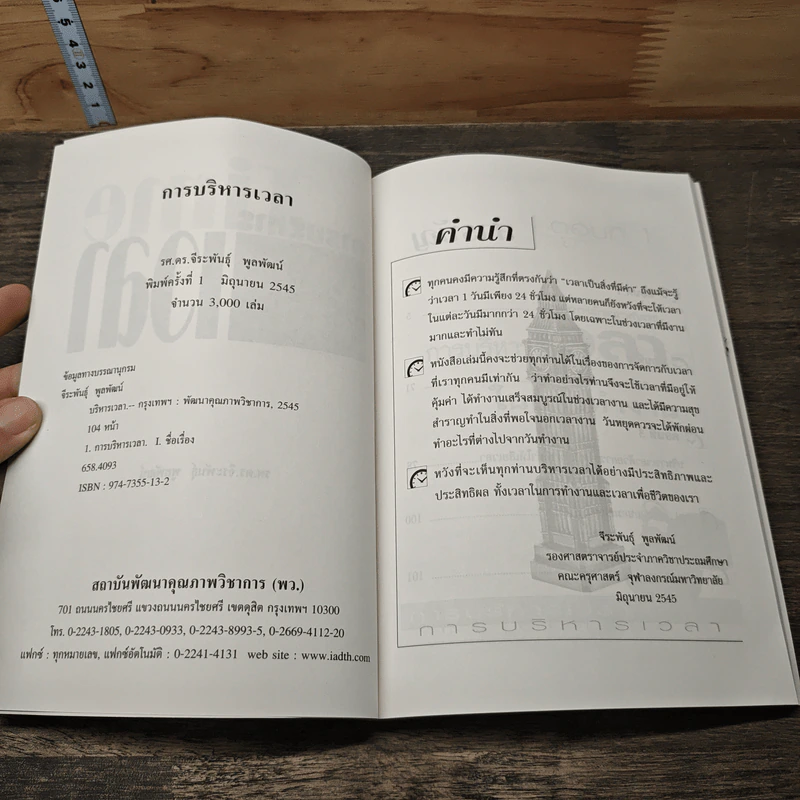 5 4 3 2 1
การบริหารเวลา
รศ.ดร.จีระพันธุ์ พูลพัฒน์
พิมพ์ครั้งที่ 1 มิถุนายน 2545
จำนวน 3,000 เล่ม
ข้อมูลทางบรรณานุกรม
จีระพันธุ์ พูลพัฒน์
บริหารเวลา.-- กรุงเทพฯ : พัฒนาคุณภาพวิชาการ, 2545
104 หน้า
1. การบริหารเวลา. I. ชื่อเรื่อง
658.4093
ISBN : 974-7355-13-2
สถาบันพัฒนาคุณภาพวิชาการ (พว.)
701 ถนนนครไชยศรี แขวงถนนนครไชยศรี เขตดุสิต กรุงเทพฯ 10300
โทร. 0-2243-1805, 0-2243-0933, 0-2243-8993-5, 0-2669-4112-20
แฟกซ์ : ทุกหมายเลข, แฟกซ์อัตโนมัติ : 0-2241-4131 web site : www.iadth.com
คำนำ
ทุกคนคงมีความรู้สึกที่ตรงกันว่า "เวลาเป็นสิ่งที่มีค่า" ถึงแม้จะรู้
ว่าเวลา 1 วันมีเพียง 24 ชั่วโมง แต่หลายคนก็ยังหวังที่จะให้เวลา
ในแต่ละวันมีมากกว่า 24 ชั่วโมง โดยเฉพาะในช่วงเวลาที่มีงาน
มากและทำไม่ทัน
หนังสือเล่มนี้คงจะช่วยทุกท่านได้ในเรื่องของการจัดการกับเวลา
ที่เราทุกคนมีเท่ากัน ว่าทำอย่างไรท่านจึงจะใช้เวลาที่มีอยู่ให้
คุ้มค่า ได้ทำงานเสร็จสมบูรณ์ในช่วงเวลางาน และได้มีความสุข
สำราญทำในสิ่งที่พอใจนอกเวลางาน วันหยุดควรจะได้พักผ่อน
ทำอะไรที่ต่างไปจากวันทำงาน
หวังที่จะเห็นทุกท่านบริหารเวลาได้อย่างมีประสิทธิภาพและ
ประสิทธิผล ทั้งเวลาในการทำงานและเวลาเพื่อชีวิตของเรา
จีระพันธุ์ พูลพัฒน์
รองศาสตราจารย์ประจำภาควิชาประถมศึกษา
คณะครุศาสตร์ จุฬาลงกรณ์มหาวิทยาลัย
มิถุนายน 2545
การบริหารเวลา